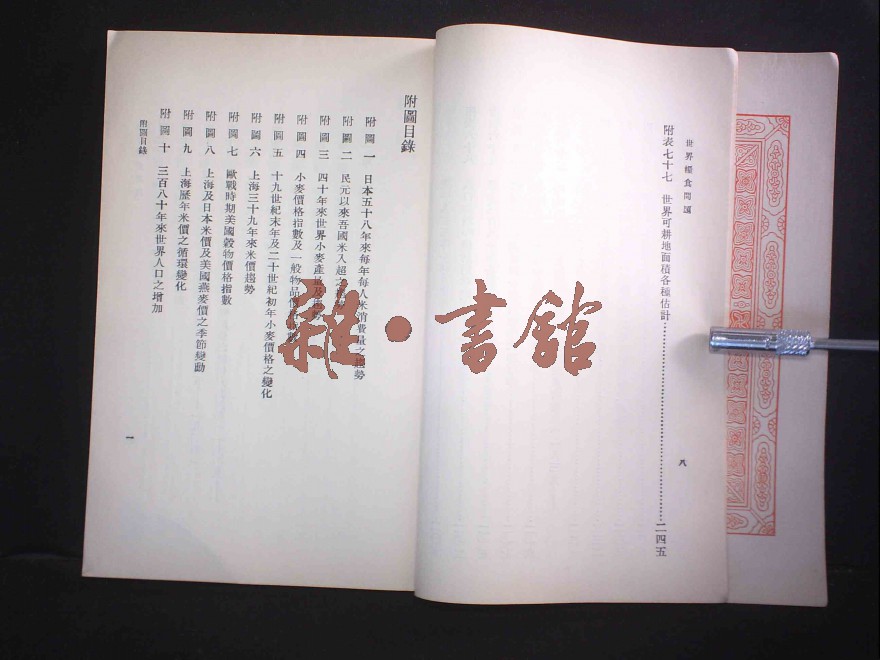 世界糧食問題
附表七十七 世界可耕地面積各種估計……二四五
八
附圖目錄
附圖一 日本五十八年來每年每人米消費量之趨勢
附圖二 民元以來吾國米入超之
附圖三 四十年來世界小麥產量及
附圖四 小麥價格指數及一般物品
附圖五 十九世紀末年及二十世紀初年小麥價格之變化
附圖六 上海三十九年來米價趨勢
附圖七 歐戰時期美國穀物價格指數
附圖八 上海及日本米價及美國燕麥價之季節變動
附圖九 上海歷年米價之循環變化
附圖十 三百八十年來世界人口之增加
附圖目錄
一
雜·書館